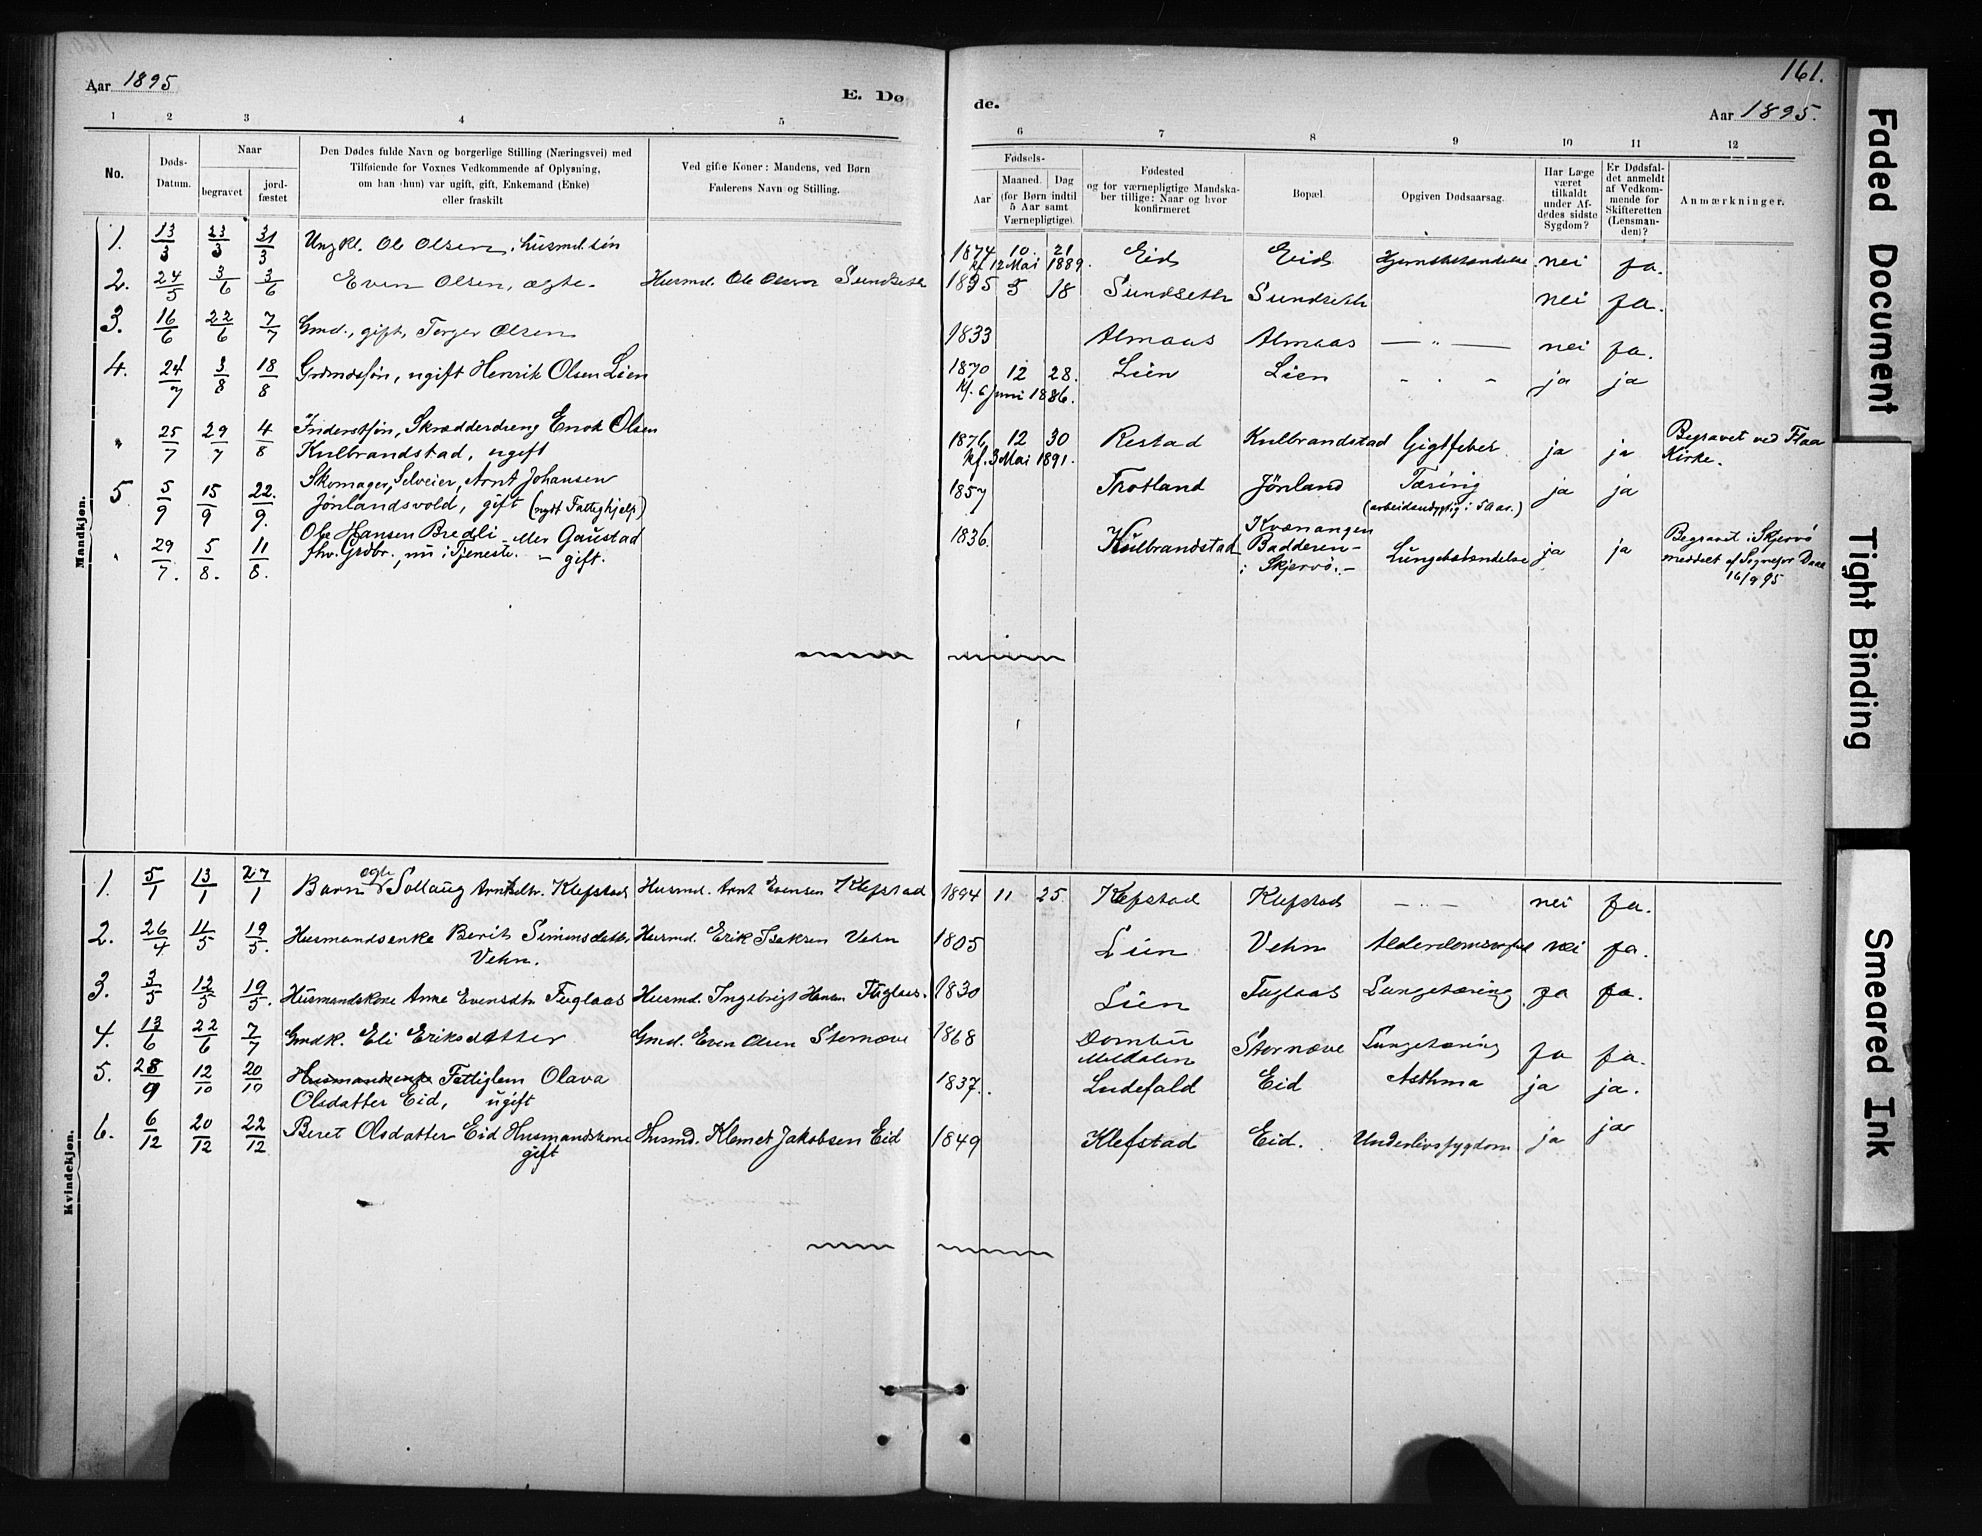 161.
Aar 1895
E. Dø
de.
Aar 1895.
1 2 3 4 5
6 7 8 9 10 11 12
No.
Døds-
Datum.
Naar
begravet
jord-
fæstet
Den Dødes fulde Navn og borgerlige Stilling (Næringsvei) med
Tilføiende for Voxnes Vedkommende af Oplysning,
om han (hun) var ugift, gift, Enkemand (Enke)
eller fraskilt
Ved gifte Koner: Mandens, ved Børn
Faderens Navn og Stilling.
Fødsels-
Aar
Maaned.
Dag
(for Børn indtil
5 Aar samt
Værnepligtige).
Fødested
og for værnepligtige Mandska-
ber tillige: Naar og hvor
konfirmeret
Bopæl.
Opgiven Dødsaarsag.
Har Læge
været
tilkaldt
under Af-
dødes sidste
Sygdom?
Er Dødsfal-
det anmeldt
af Vedkom-
mende for
Skifteretten
(Lensman-
den)?
Anmærkninger.
Mandkjøn.
1. 13/3 23/3 31/3 Ungkl. Ole Olsen, husmd.søn 1874 10. 21 Eid Eid nei ja.
kf. 12 Mai 1889.
2. 24/5 3/6 3/6 Even Olsen, ægte. Husmd. Ole Olsen Sundseth 1895 5 18 Sundseth Sundseth nei ja.
3. 16/6 22/6 7/7 Gmd., gift, Torger Olsen 1833 Almaas Almaas — " — nei ja.
4. 24/7 3/8 18/8 Grdmdssøn, ugift Henrik Olsen Lien 1870 12 28. Lien Lien - . - ja ja
Kf. 6 Juni 1886.
" 25/7 29/7 4/8 Inderstsøn, Skrædderdreng Enok Olsen
Kulbrandstad, ugift 1876 12 30 Restad Kulbrandstad Gigtfeber. ja ja Begravet ved Flaa
Kirke.
kf. 3 Mai 1891.
5 5/9 15/9 22./9. Skomager, Selveier, Arnt Johansen
Jønlandsvold, gift (nydt Fattighjelp) 1857 Trotland Jønland Tæring ja ja
(arbeidsudygtig i 5 Aar.)
" 29/7. 5/8. 11/8. Ole Hansen Bredli eller Gaustad
fhv. Grdbr., nu i Tjeneste. — gift. 1836. Kulbrandstad Kvænangen
Badderen -
i Skjervø. - Lungebetændelse ja ja Begravet i Skjervø
meddelt af Sognepr Daae
16/9 95
Kvindekjøn.
1. 5/1 13/1 27/1 Barn ægte Sollaug Arntsdtr. Klefstad Husmd. Arnt Evensen Klefstad 1894 11 25. Klefstad Klefstad - . - nei ja.
2. 26/4 11/5 19/5. Husmandsenke Berit Simonsdatter
Vehn. Husmd. Erik Isaksen Vehn 1805 Lien Vehn nei ja.
3. 3/5 12/5 19/5. Husmandskone Anne Evensdtr Fuglaas Husmd. Ingebrigt Hansen Fuglaas. 1830 Lien Fuglaas Lungetæring ja ja.
4. 13/6 22/6 7/7 Gmdk. Eli Eriksdatter Gmd. Even Olsen Stornæve 1868 Dombu
Meldalen Stornæve Lungetæring ja ja.
5. 28/9 12/10 20/10 Husmandsenke Fattiglem Olava
Olsdatter Eid, ugift 1837. Ludefald Eid Asthma ja ja.
6. 6/12 20/12 22/12 Beret Olsdatter Eid Husmandskone
gift Husmd. Klemet Jakobsen Eid 1849 Klefstad Eid. Underlivssygdom ja ja
Faded Document
Tight Binding
Smeared Ink